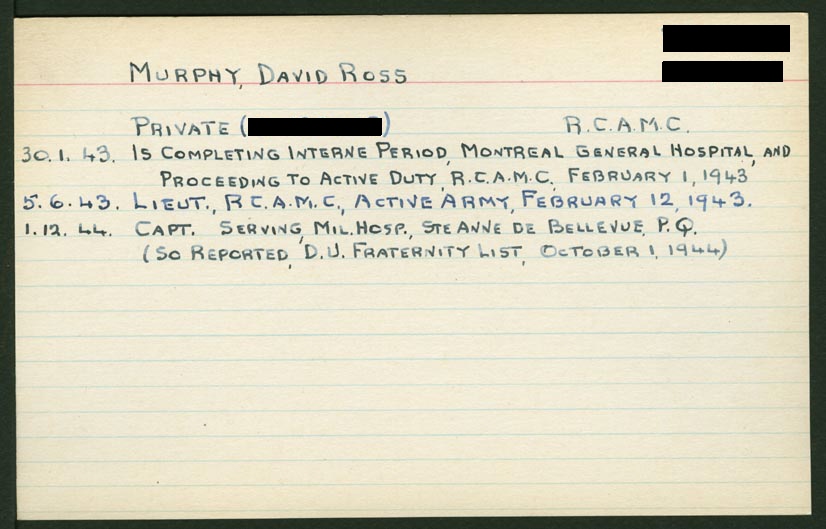 MURPHY, DAVID ROSS
PRIVATE ( ) R.C.A.M.C.
30.1.43. IS COMPLETING INTERNE PERIOD, MONTREAL GENERAL HOSPITAL, AND
PROCEEDING TO ACTIVE DUTY, R.C.A.M.C. FEBRUARY 1, 1943
5.6.43. LIEUT., R.C.A.M.C., ACTIVE ARMY, FEBRUARY 12, 1943.
1.12.44. CAPT. SERVING, MIL. HOSP., STE ANNE DE BELLEVUE, P.Q.
(SO REPORTED, D.U. FRATERNITY LIST, OCTOBER 1, 1944)